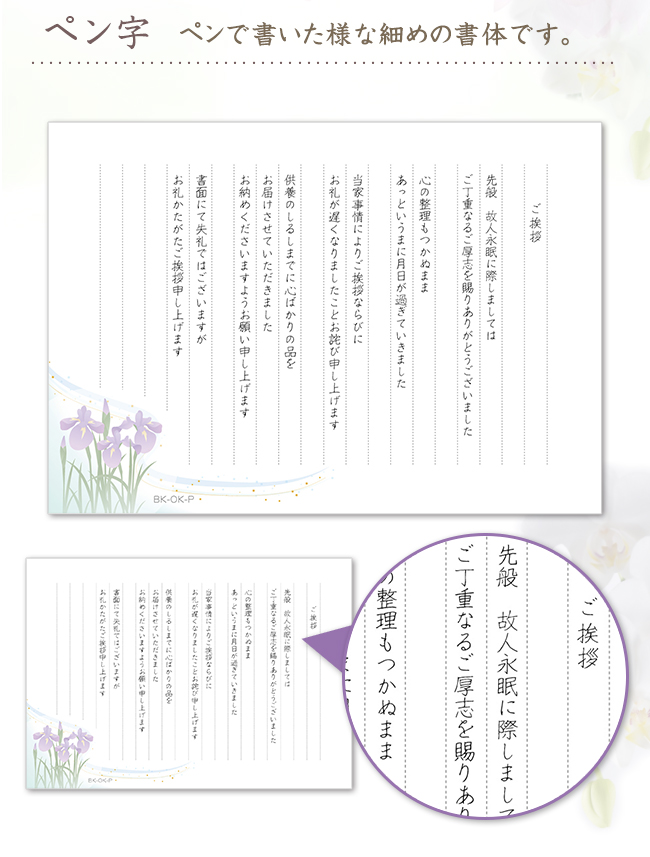 ペン字 ペンで書いた様な細めの書体です。
ご挨拶
先般 故人永眠に際しましては
ご丁重なるご厚志を賜りありがとうございました
心の整理もつかぬまま
あっというまに月日が過ぎていきました
当家事情によりご挨拶ならびに
お礼が遅くなりましたことお詫び申し上げます
供養のしるしまでに心ばかりの品を
お届けさせていただきました
お納めくださいますようお願い申し上げます
書面にて失礼ではございますが
お礼かたがたご挨拶申し上げます
BK-OK-P
ご挨拶
先般 故人永眠に際しましては
ご丁重なるご厚志を賜りありがとうございました
心の整理もつかぬまま
あっというまに月日が過ぎていきました
当家事情によりご挨拶ならびに
お礼が遅くなりましたことお詫び申し上げます
供養のしるしまでに心ばかりの品を
お届けさせていただきました
お納めくださいますようお願い申し上げます
書面にて失礼ではございますが
お礼かたがたご挨拶申し上げます
BK-OK-P
ご挨拶
先般 故人永眠に際しまして
ご丁重なるご厚志を賜りあり
の整理もつかぬまま